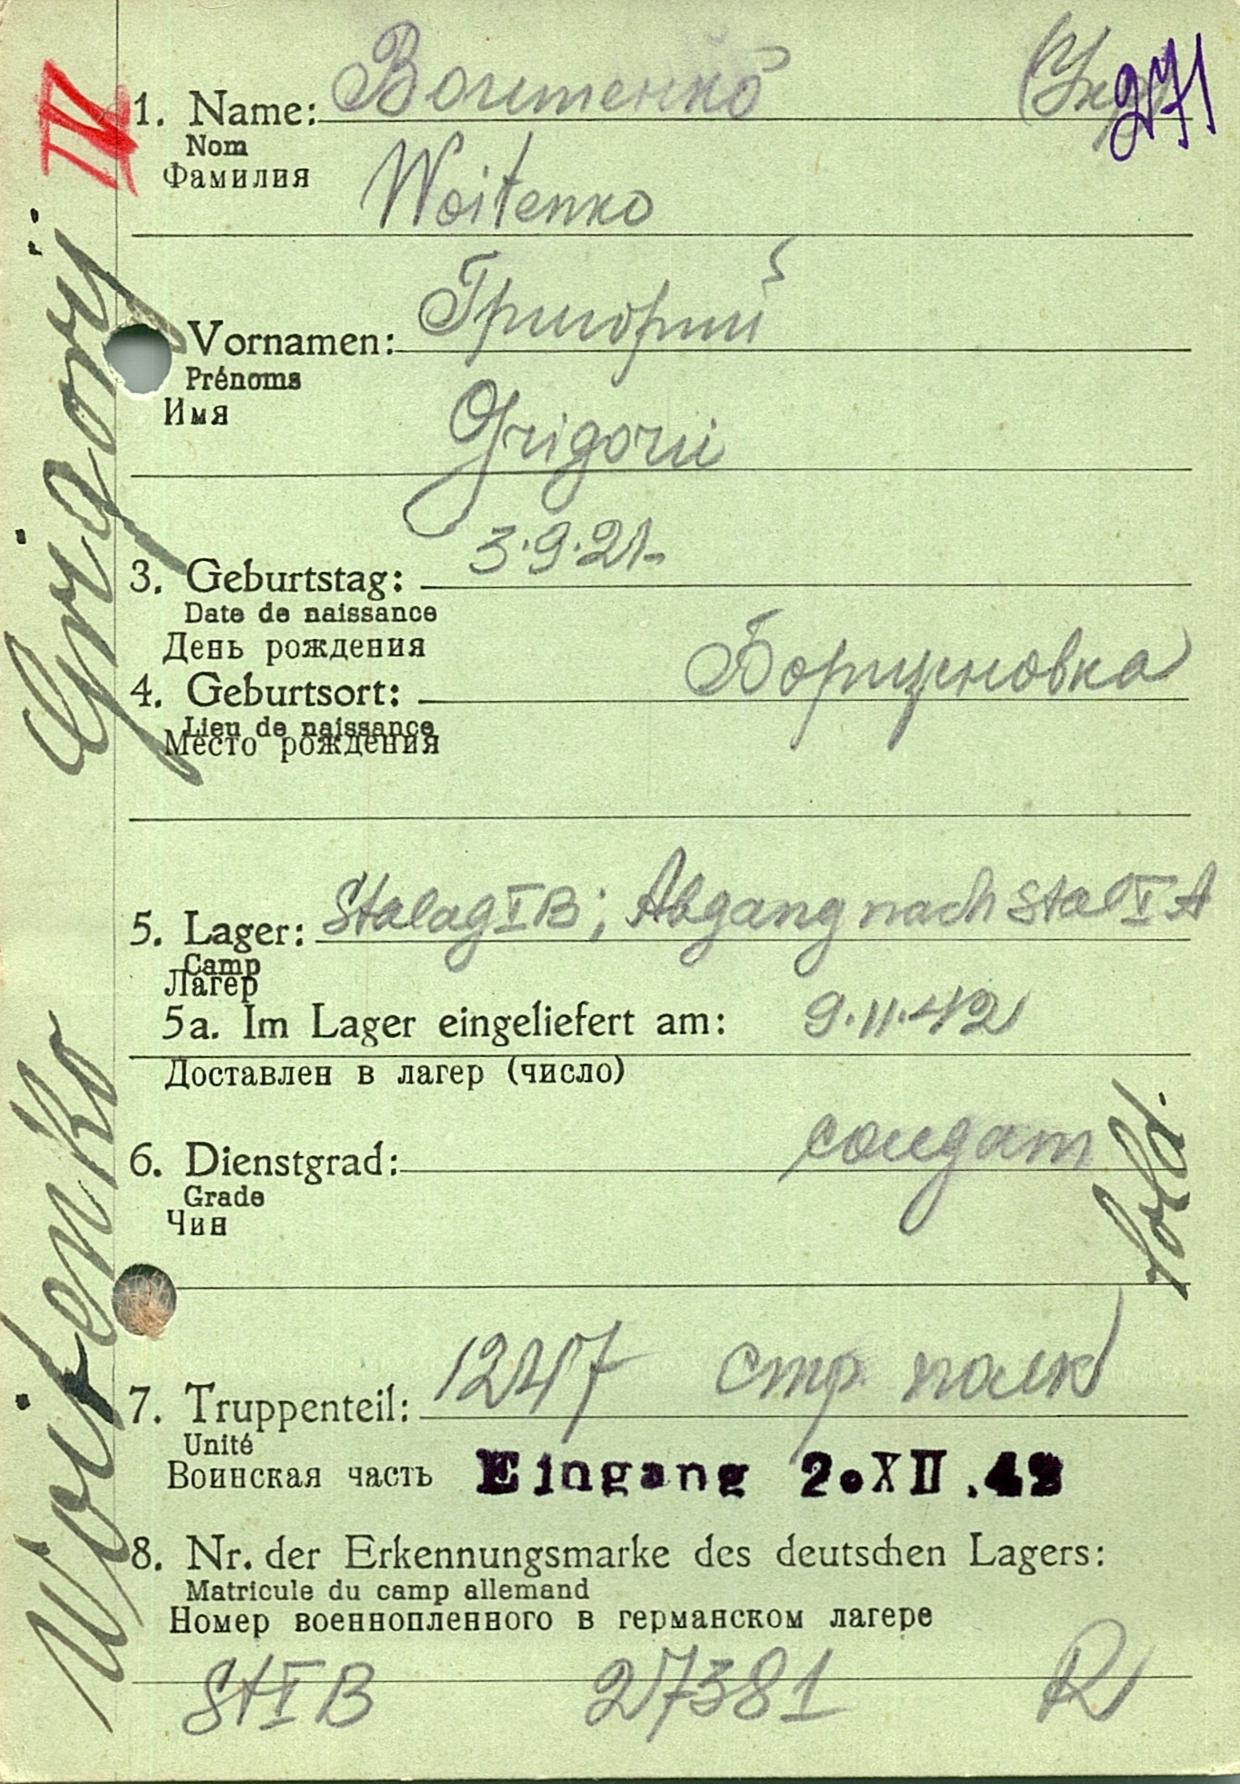 IV
1. Name: Воитенко (Укр) 271
Nom
Фамилия
Woitenko
Vornamen: Григорий
Prénoms
Имя
Grigorii
3. Geburtstag: 3.9.21-
Date de naissance
День рождения
4. Geburtsort: Борщеновка
Lieu de naissance
Место рождения
5. Lager: Stalag I B; Abgang nach Stal I A
Camp
Лагер
5a. Im Lager eingeliefert am: 9.11.42
Доставлен в лагер (число)
6. Dienstgrad: солдат
Grade
Чин
Sold.
7. Truppenteil: 1247 стр. полк
Unité
Воинская часть
Eingang 2.XII.42
8. Nr. der Erkennungsmarke des deutschen Lagers:
Matricule du camp allemand
Номер военнопленного в германском лагере
St I B 27381 R
Woitenko Grigorij